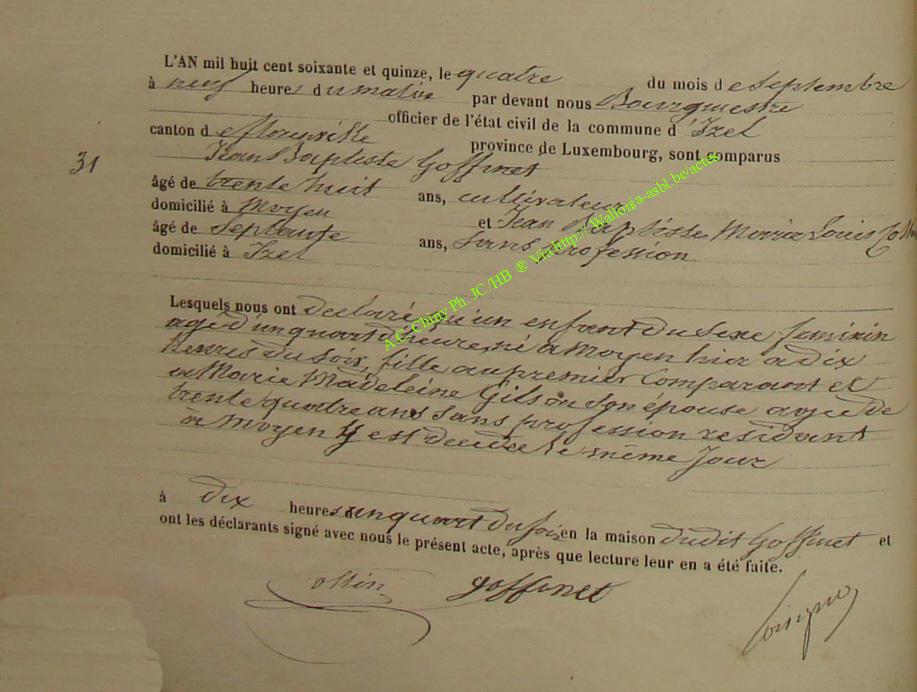 L'AN mil huit cent soixante et quinze, le quatre du mois de Septembre
à neuf heures du matin par devant nous Bourgmestre
officier de l'état civil de la commune d'Izel
canton de florenville province de Luxembourg, sont comparus
31
Jean Baptiste Goffinet
âgé de trente huit ans, cultivateur
domicilié à Moyen et Jean Baptiste Marie Louis
âgé de Septante ans, Sans profession
domicilié à Izel
Lesquels nous ont déclaré qu'un enfant du Sexe féminin
agé d'un quart d'heure, né a Moyen hier a dix
heures du Soir, fille au premier Comparant et
a Marie Madeleine Gilson Son épouse agée de
trente quatre ans Sans profession residant
à Moyen y est decedé le même Jour
à dix heures un quart du soir en la maison dudit Goffinet et
ont les déclarants signé avec nous le présent acte, après que lecture leur en a été faite.
goffinet
A.G. Chiny Ph. JC/HB ® Via http://Wallonia-asbl.be/actes